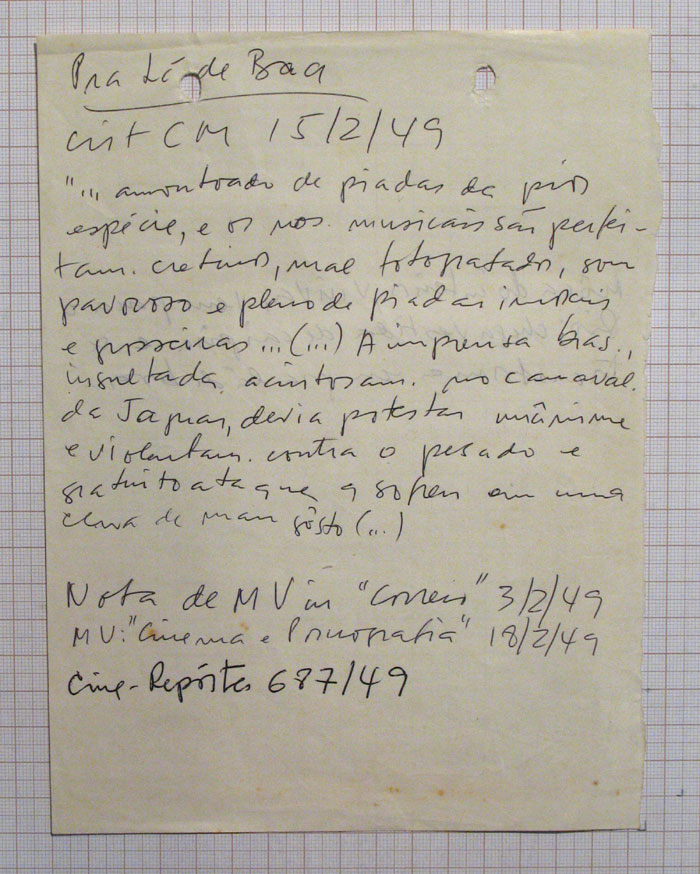 Pra Lá de Boa
crit CM 15/2/49
"... amontoado de piadas da pior
espécie, e os nos. musicais são perfei-
tam. cretinos, mal fotografado, som
pavoroso e pleno de piadas imorais
e grosseiras ... (...) A imprensa bras.,
insultada acintosam. no carnaval
da Jaguar, devia protestar unânime
e violentam. contra o pesado e
gratuito ataque q sofreu em uma
cena de mau gôsto (...)
Nota de MV in "Correio" 3/2/49
MV: "Cinema e Pornografia" 18/2/49
Cine-Repórter 687/49